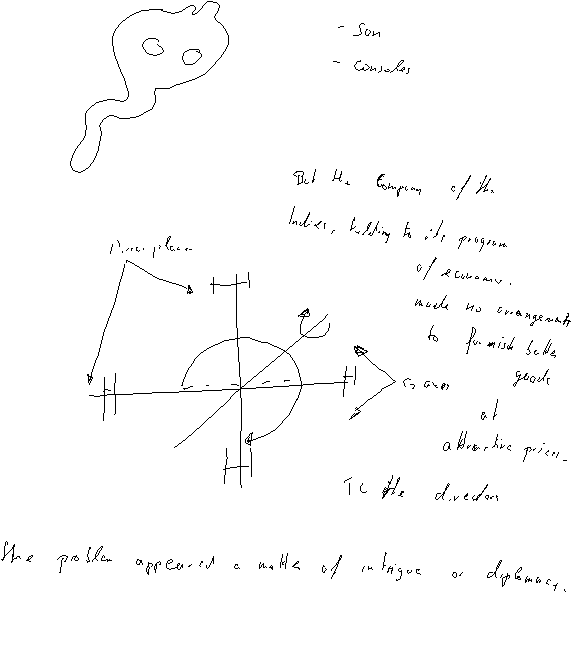 - Son
- consoles
But the Company of the
Indies, holding to its program
of economy,
made no arrangements
to furnish better
goods
at
attractive prices.
Mirror plane
C2 axes
To the directors
the problem appeared a matter of intrigue or diplomacy.